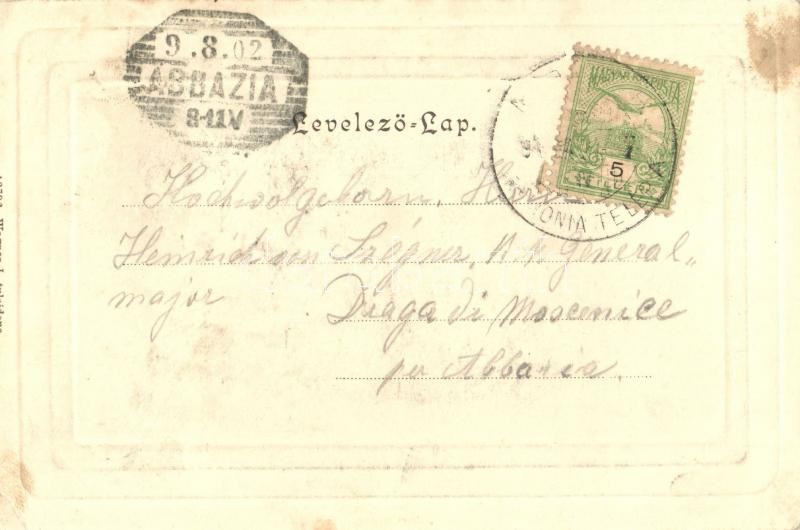 9.8.02
ABBAZIA
8-11V
Levelező-Lap.
MAGYAR KIR. POSTA
5
TELEP
Hochwolgeborn, Herrn
Heinrich von Szégner, K. K. General„
major Draga di Moscenice
per Abbazia.